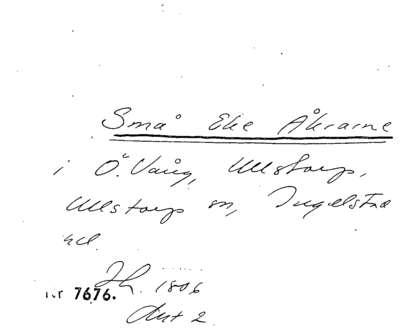 Små Eke Åkrarne
i Ö. Vång, Ullstorp,
Ullstorp sn, Ingelstad
hd.
Sh. 1806
nr 7676.
Akt 2